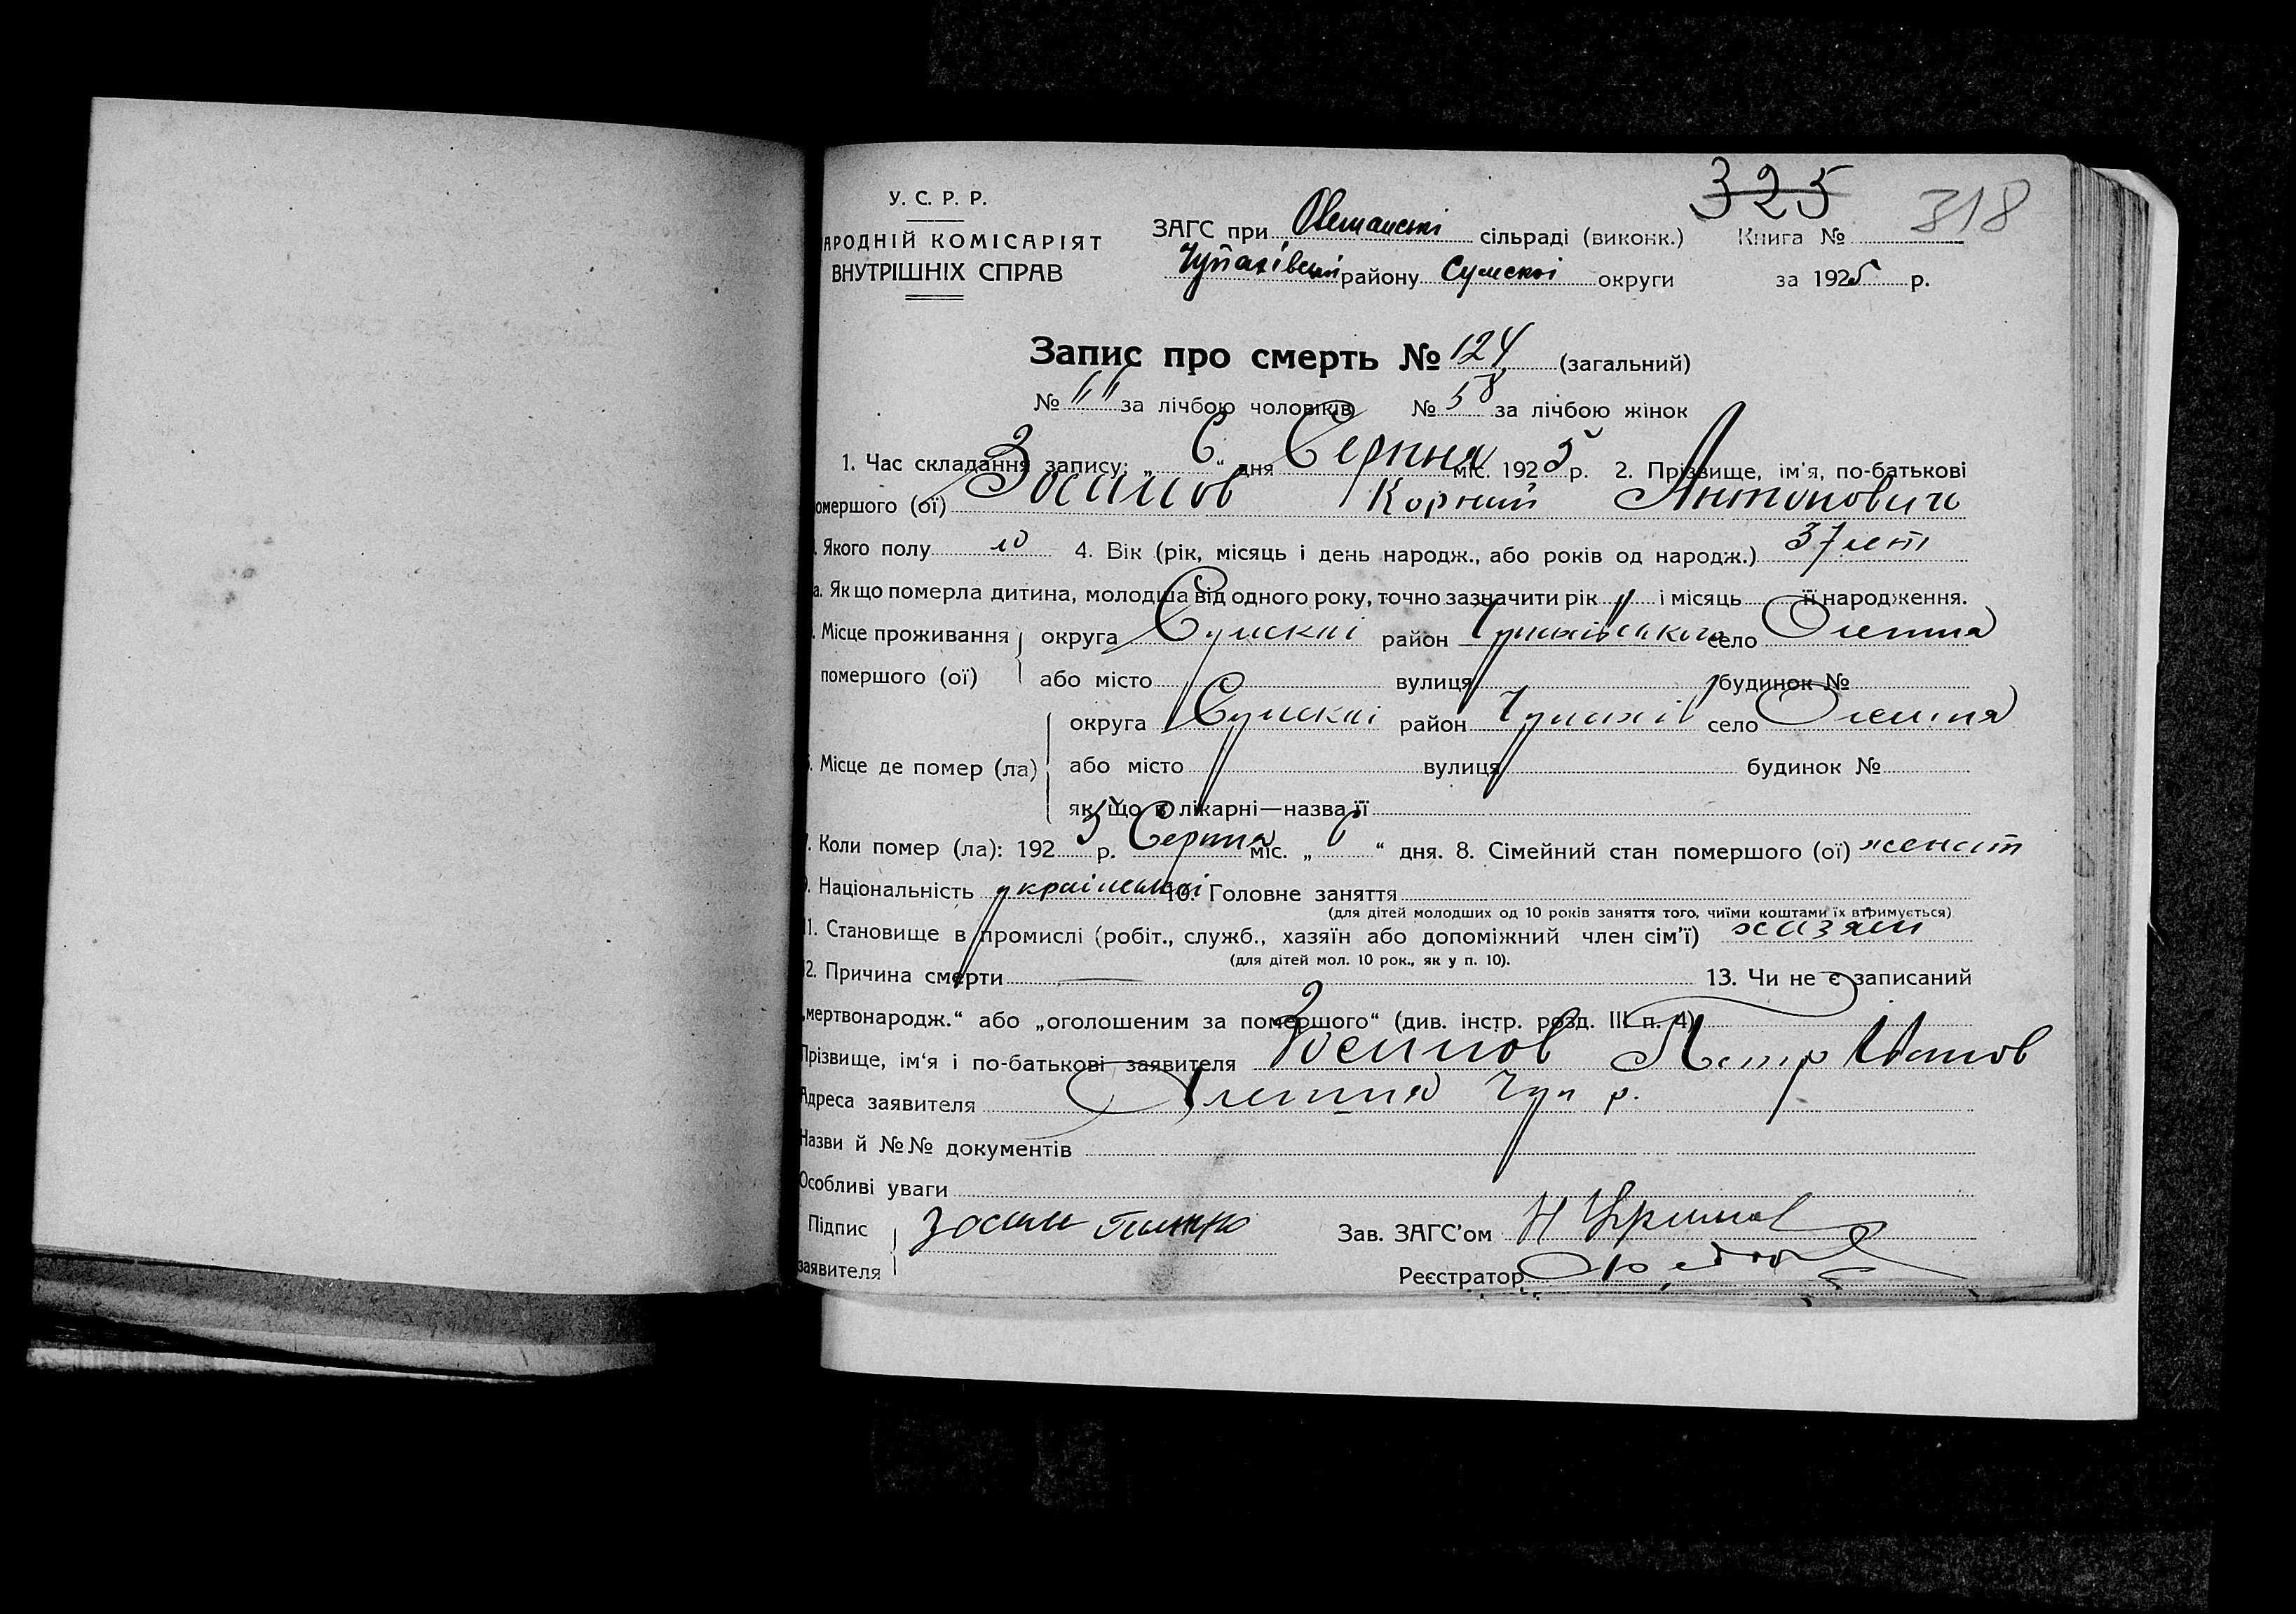 325 318
У. С. Р. Р.
АРОДНІЙ КОМІСАРІЯТ
ВНУТРІШНІХ СПРАВ
ЗАГС при сільраді (виконк.) Книга №
району Сумскої округи за 1925 р.
Запис про смерть № 124 (загальний)
№ за лічбою чоловіків № 58 за лічбою жінок
1. Час складання запису: „ 6 “ дня Серпня міс. 1925 р. 2. Прізвище, ім'я, по-батькові
омершого (ої) Зосимов Корний Антонович
Якого полу 4. Вік (рік, місяць і день народж., або років од народж.) 37 лет
а. Якщо померла дитина, молодша від одного року, точно зазначити рік " і місяць її народження.
Місце проживання округа Сумскої район Чупахівського село Олешня
помершого (ої) або місто вулиця будинок №
округа Сумскої район Чупахів село Олешня
Місце де помер (ла) або місто вулиця будинок №
якщо в лікарні—назва її
Коли помер (ла): 1925 р. Серпня міс. „ 6 “ дня. 8. Сімейний стан помершого (ої) женат
9. Національність 10. Головне заняття
(для дітей молодших од 10 років заняття того, чиїми коштами їх втримується)
11. Становище в промислі (робіт., служб., хазяїн або допоміжний член сім'ї) хазяин
(для дітей мол. 10 рок., як у п. 10).
12. Причина смерти — 13. Чи не є записаний
„мертвонародж.“ або „оголошеним за помершого“ (див. інстр. розд. III п. 4)
Прізвище, ім'я і по-батькові заявителя Зосимов Петр Иванов
Адреса заявителя Олешня Чуп р.
Назви й №№ документів
Особливі уваги
Підпис Зав. ЗАГС'ом
заявителя Реєстратор